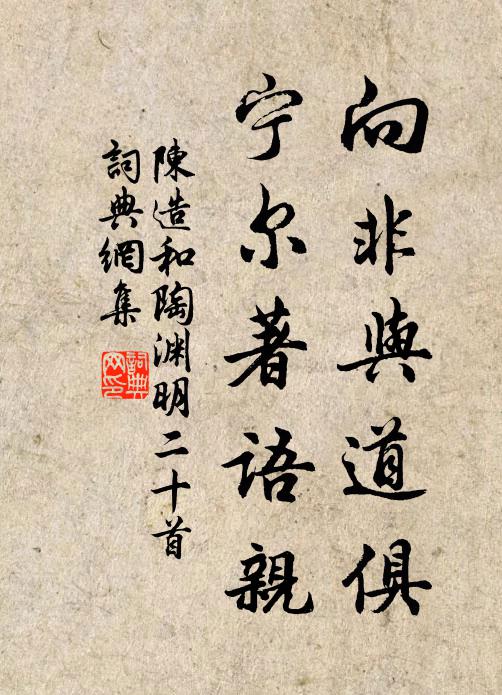 向非與道俱
宁尔著語親
陳造和陶渊明二十首
詞典網集
詞典网印